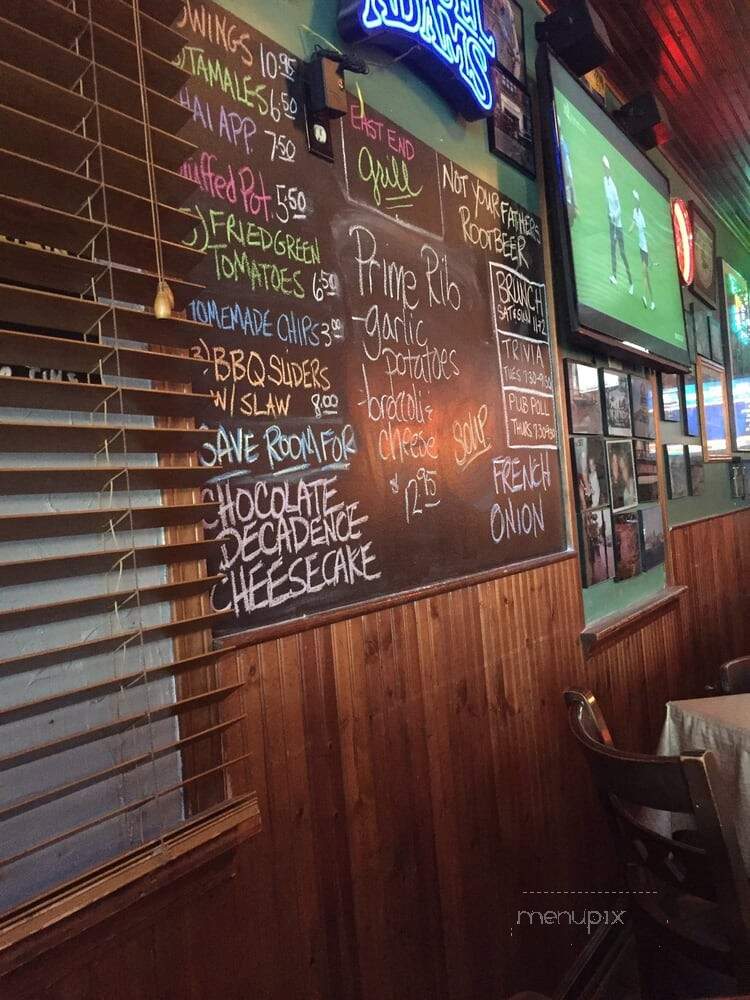 WINGS 10.95
TAMALES 6.50
APP. 7.50
Pot. 5.50
5) FRIED GREEN
TOMATOES 6.50
HOMEMADE CHIPS 3.00
3) BBQ SLIDERS
W/ SLAW 8.00
SAVE ROOM FOR
CHOCOLATE
DECADENCE
CHEESECAKE
ADAMS
EAST END
grill
Prime Rib
-garlic
potatoes
-broccoli &
cheese
$12.95
NOT YOUR FATHERS
ROOTBEER
BRUNCH
SAT & SUN 11-2
TRIVIA
TUES 7:30-9:30
PUB POLL
THURS 7:30-9:30
SOUP
FRENCH
ONION
menupix